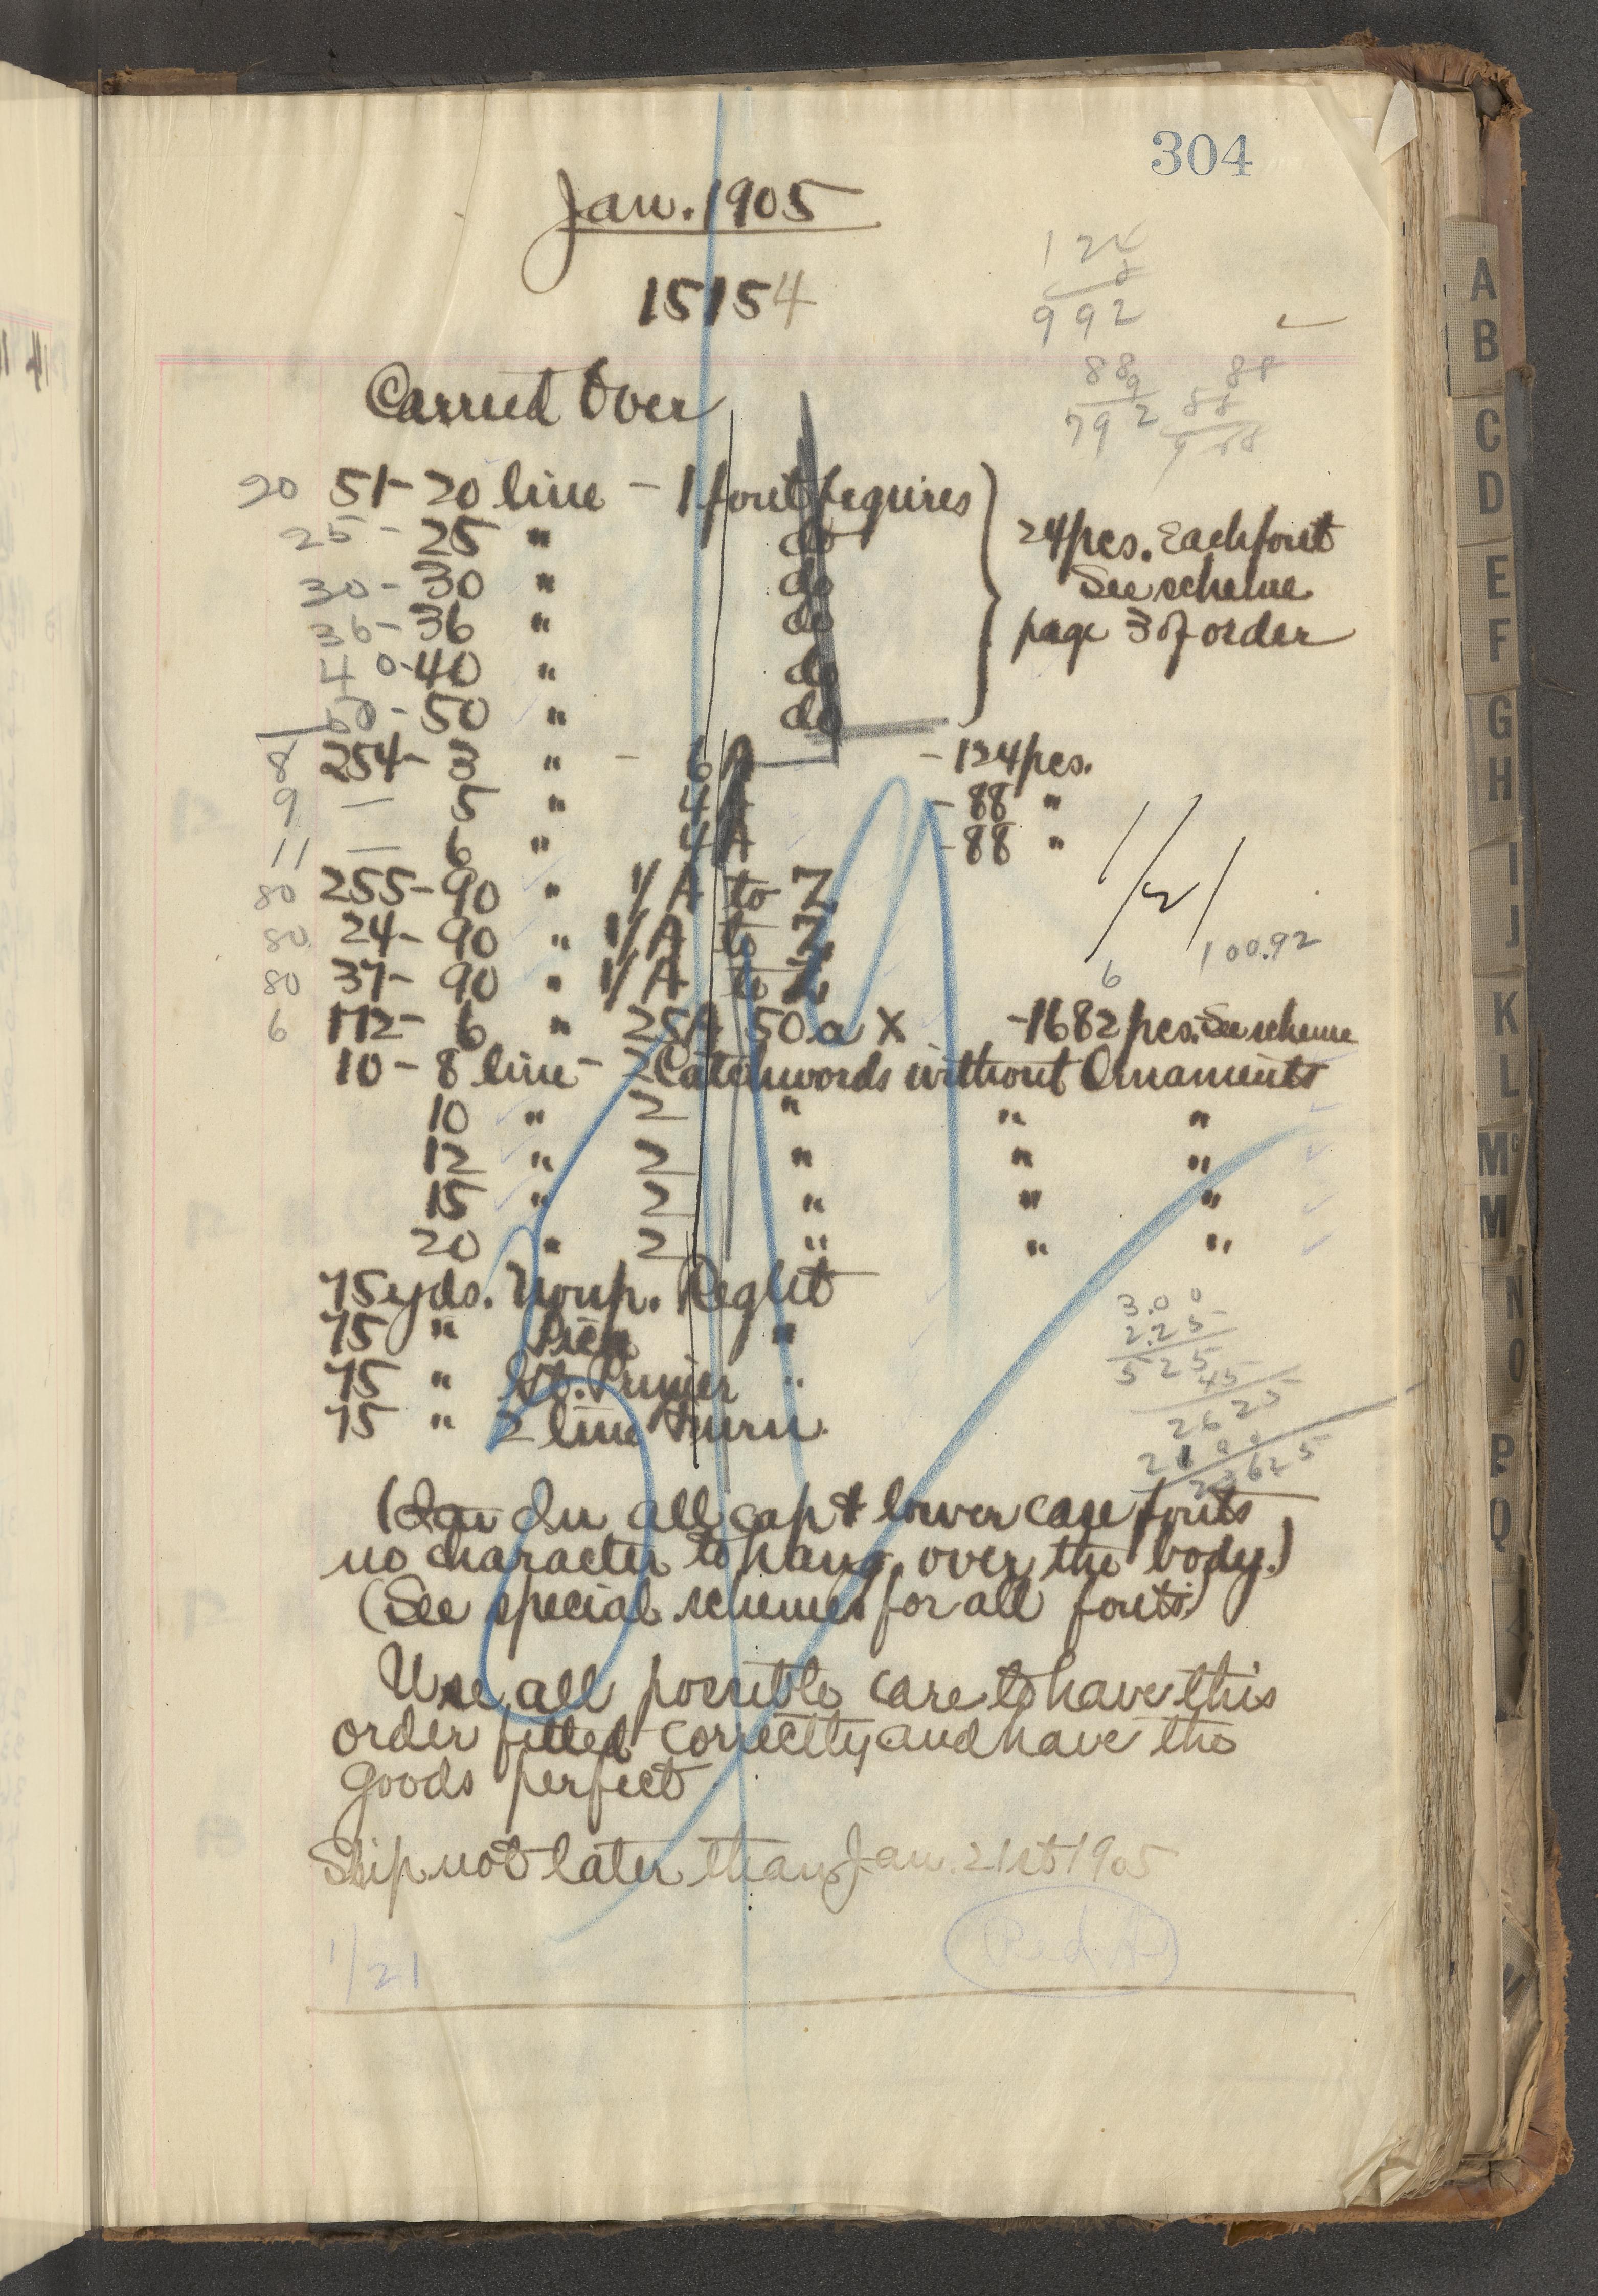 304
Jan. 1905
15154
124
8
992
88 88
9 88
792 968
Carried Over
20 51 - 20 line - 1 font figures
25 - 25 " do
30 - 30 " do
36 - 36 " do
40 - 40 " do
50 - 50 " do
24 pcs. Each font
See scheme
page 3 of order
8 254 - 3 " - 6 A - 124 pcs.
9 — 5 " 4 A - 88 "
11 — 6 " 4 A - 88 "
80 255 - 90 " 1/A to Z
80 24 - 90 " 1/A to Z
80 37 - 90 " 1/A to Z
6 100.92
6 172 - 6 " 25A 50a X - 1682 pcs. See scheme
10 - 8 line - 2 Catchwords without Ornaments
10 " 2 " " "
12 " 2 " " "
15 " 2 " " "
20 " 2 " " "
75 yds. Nonp. Reglet
75 " Pica "
75 " Gt. Primer "
75 " 2 line Furn.
3.00
2.25
525
45
2625
2100
23625
In all cap & lower case fonts
no character to hang over the body.)
(See special schemes for all fonts)
Use all possible care to have this
order filled correctly and have the
goods perfect
Ship not later than Jan. 21st 1905
1/21
A
B
C
D
E
F
G
H
I
J
K
L
Mc
M
N
O
P
Q